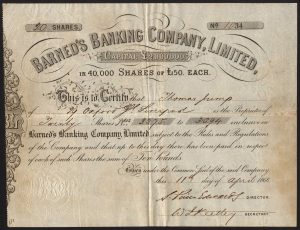 20 SHARES Nº 1134
BARNED'S BANKING COMPANY, LIMITED.
CAPITAL £2,000,000
IN 40,000 SHARES OF £50. EACH.
This is to Certify that Thomas Jump
of Oxford St Liverpool is the Proprietor of
Twenty Shares Nos to inclusive in
Barned's Banking Company, Limited subject to the Rules and Regulations
of the Company and that up to this day there has been paid in respect
of each of such Shares the sum of Ten Pounds
Given under the Common Seal of the said Company,
this day of April 186
DIRECTOR.
SECRETARY.